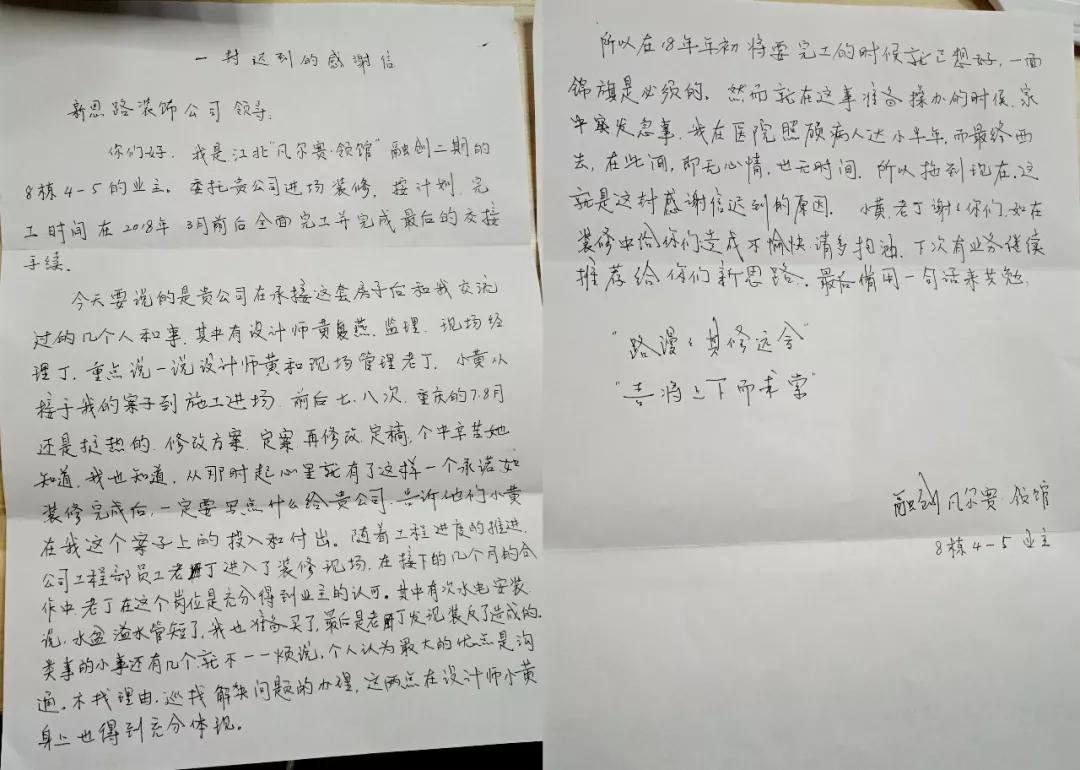 一封迟到的感谢信
新思路装饰公司领导:
你们好.我是江北"凡尔赛·领馆"融创二期的
8栋4-5的业主。委托贵公司进场装修,按计划,完
工时间在2018年3月前后全面完工并完成最后的交接
手续.
今天要说的是贵公司在承接这套房子后和我交流
过的几个人和事.其中有设计师黄燕.监理.现场经
理丁.重点说一说设计师黄和现场管理老丁.小黄从
接手我的案子到施工进场.前后七.八次.重庆的7.8月
还是挺热的.修改方案.定案.再修改.定稿,个中辛苦她
知道,我也知道,从那时起心里就有了这样一个承诺如
装修完成后,一定要写点什么给贵公司.告诉他们小黄
在我这个案子上的投入和付出。随着工程进度的推进.
公司工程部员工老丁进入了装修现场,在接下的几个月的合
作中.老丁在这个岗位是充分得到业主的认可。其中有次水电安装
说,水盆溢水管短了,我也准备买了,最后是老丁发现装反了造成的.
类事的小事还有几个.就不一一烦说,个人认为最大的优点是沟
通.不找理由.找解决问题的办理,这两点在设计师小黄
身上也得到充分体现。
所以在18年年初将要完工的时候就已想好,一面
锦旗是必须的。然而就在这事准备操办的时候.家
中突发急事.我在医院照顾病人达小半年.而最终西
去,在此间,即无心情,也无时间.所以拖到现在.这
就是这封感谢信迟到的原因。小黄.老丁谢谢你们.如在
装修中给你们造成不愉快.请多担.下次有业务继续
推荐给你们新思路.最后借用一句话来共勉:
"路漫漫其修远兮"
"吾将上下而求索"
融创凡尔赛·领馆
8栋4-5业主